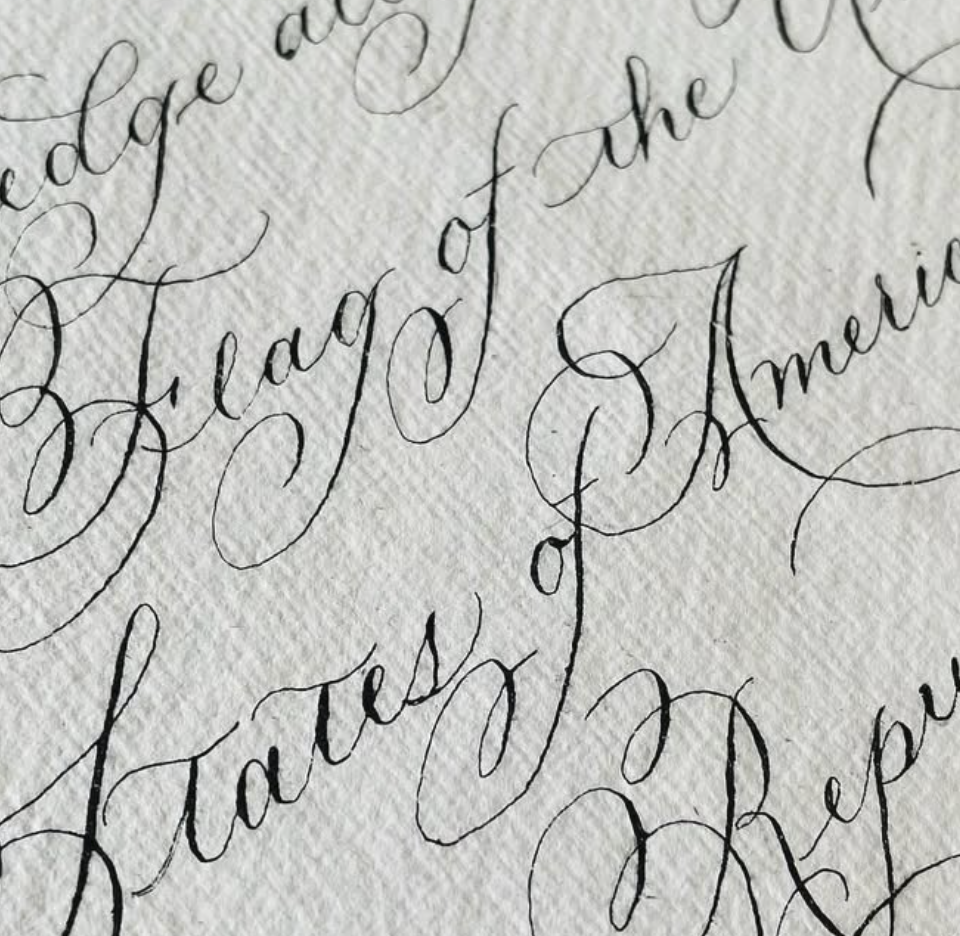 edge al
Flag of the
States of Americ
Repu